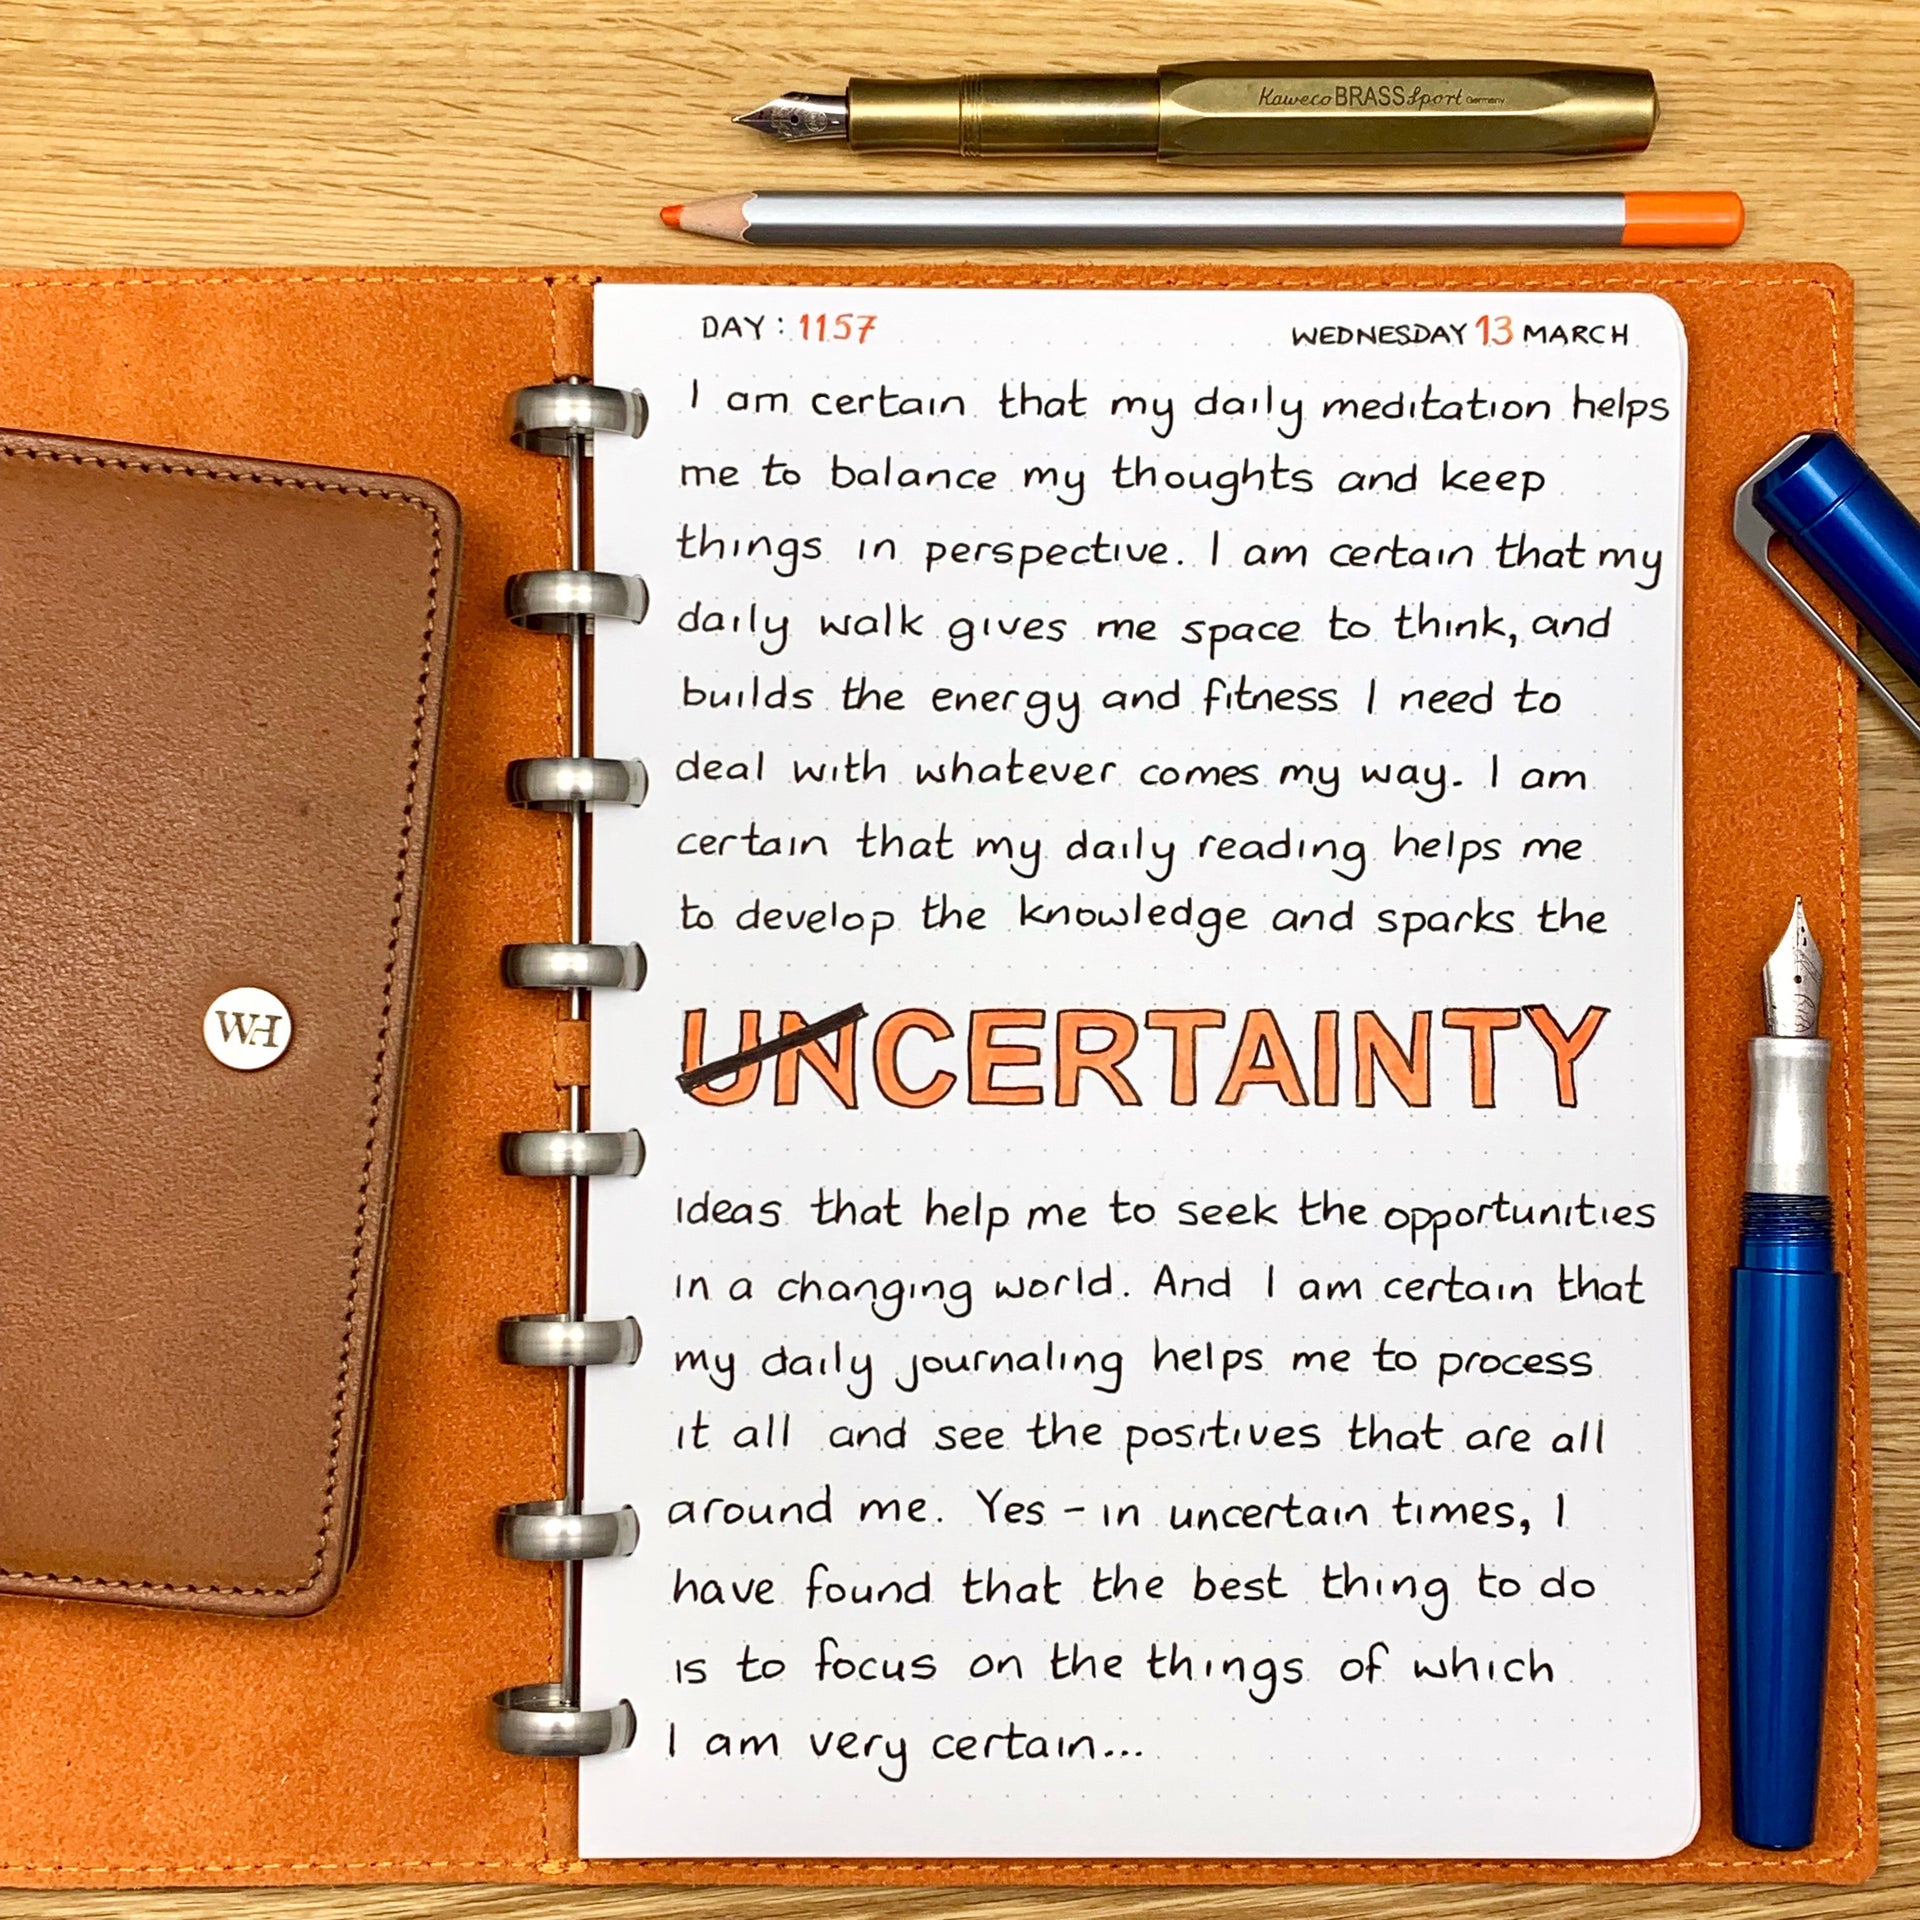 Kaweco BRASS Sport Germany
DAY: 1157
WEDNESDAY 13 MARCH
I am certain that my daily meditation helps
me to balance my thoughts and keep
things in perspective. I am certain that my
daily walk gives me space to think, and
builds the energy and fitness I need to
deal with whatever comes my way. I am
certain that my daily reading helps me
to develop the knowledge and sparks the
UNCERTAINTY
ideas that help me to seek the opportunities
in a changing world. And I am certain that
my daily journaling helps me to process
it all and see the positives that are all
around me. Yes - in uncertain times, I
have found that the best thing to do
is to focus on the things of which
I am very certain...
WH